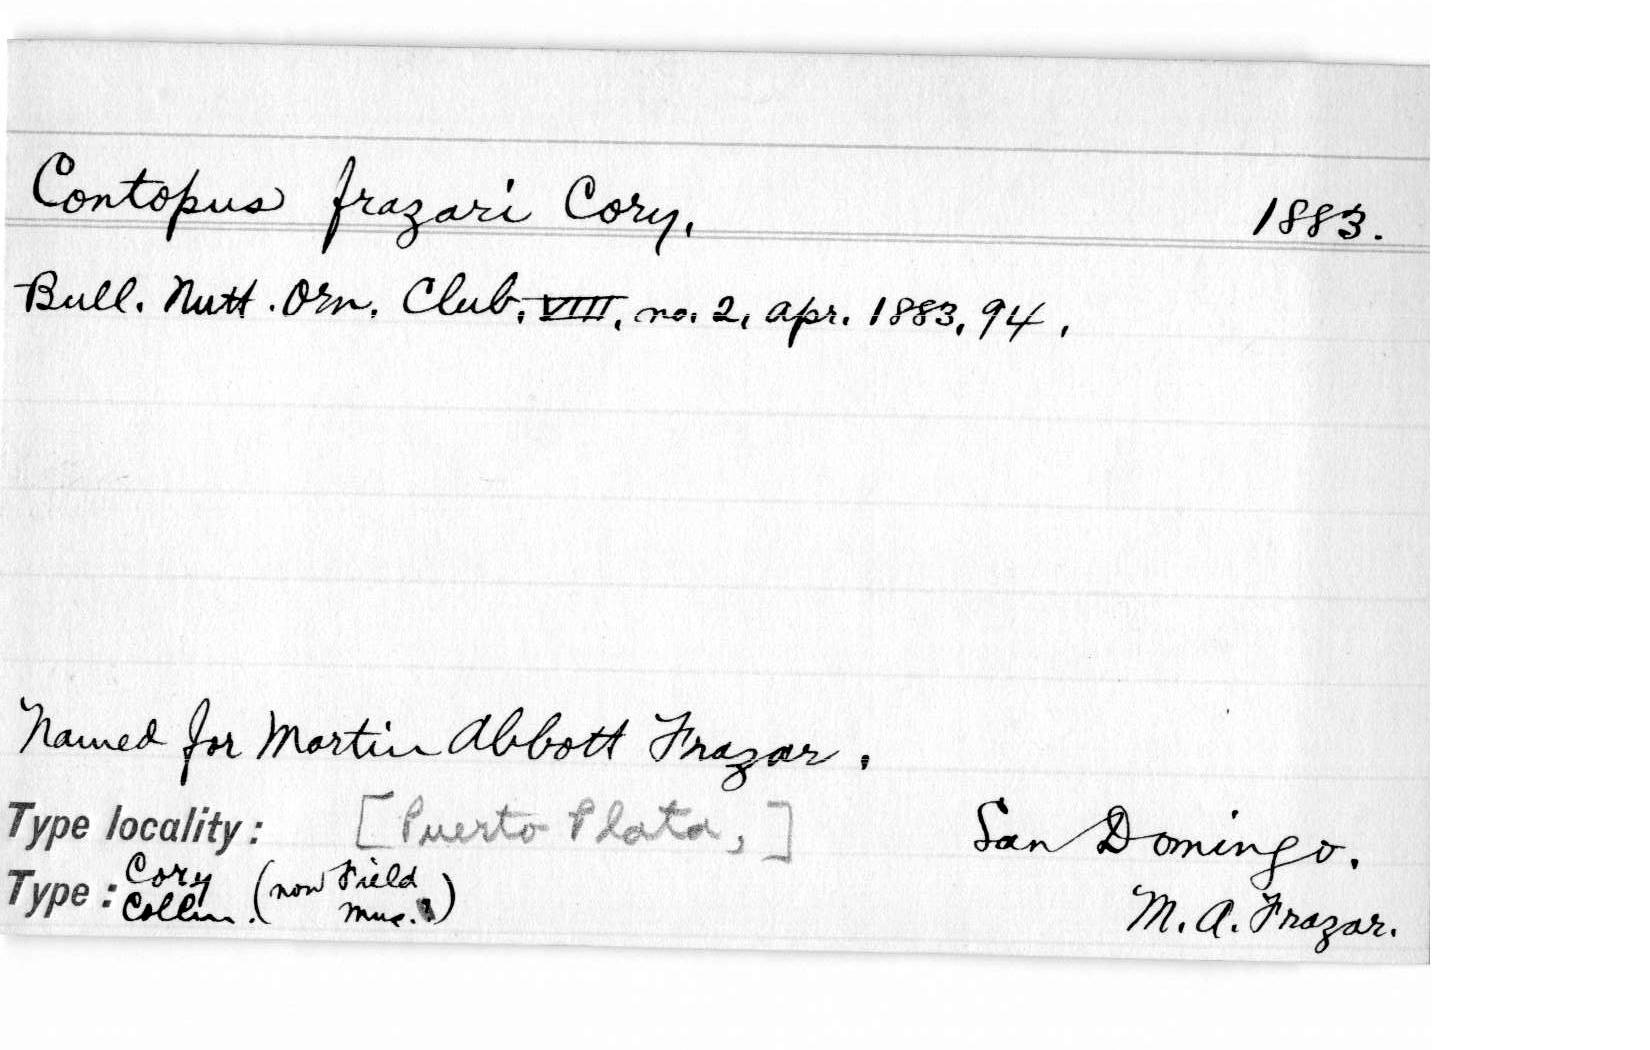 Contopus frazari Cory, 1883.
Bull. Nutt. Orn. Club, VIII, no. 2, apr. 1883, 94,
Named for Martin Abbott Frazar,
Type locality: [Puerto Plata,] San Domingo.
Type: Cory Collin. (now Field Mus.) M. A. Frazar.